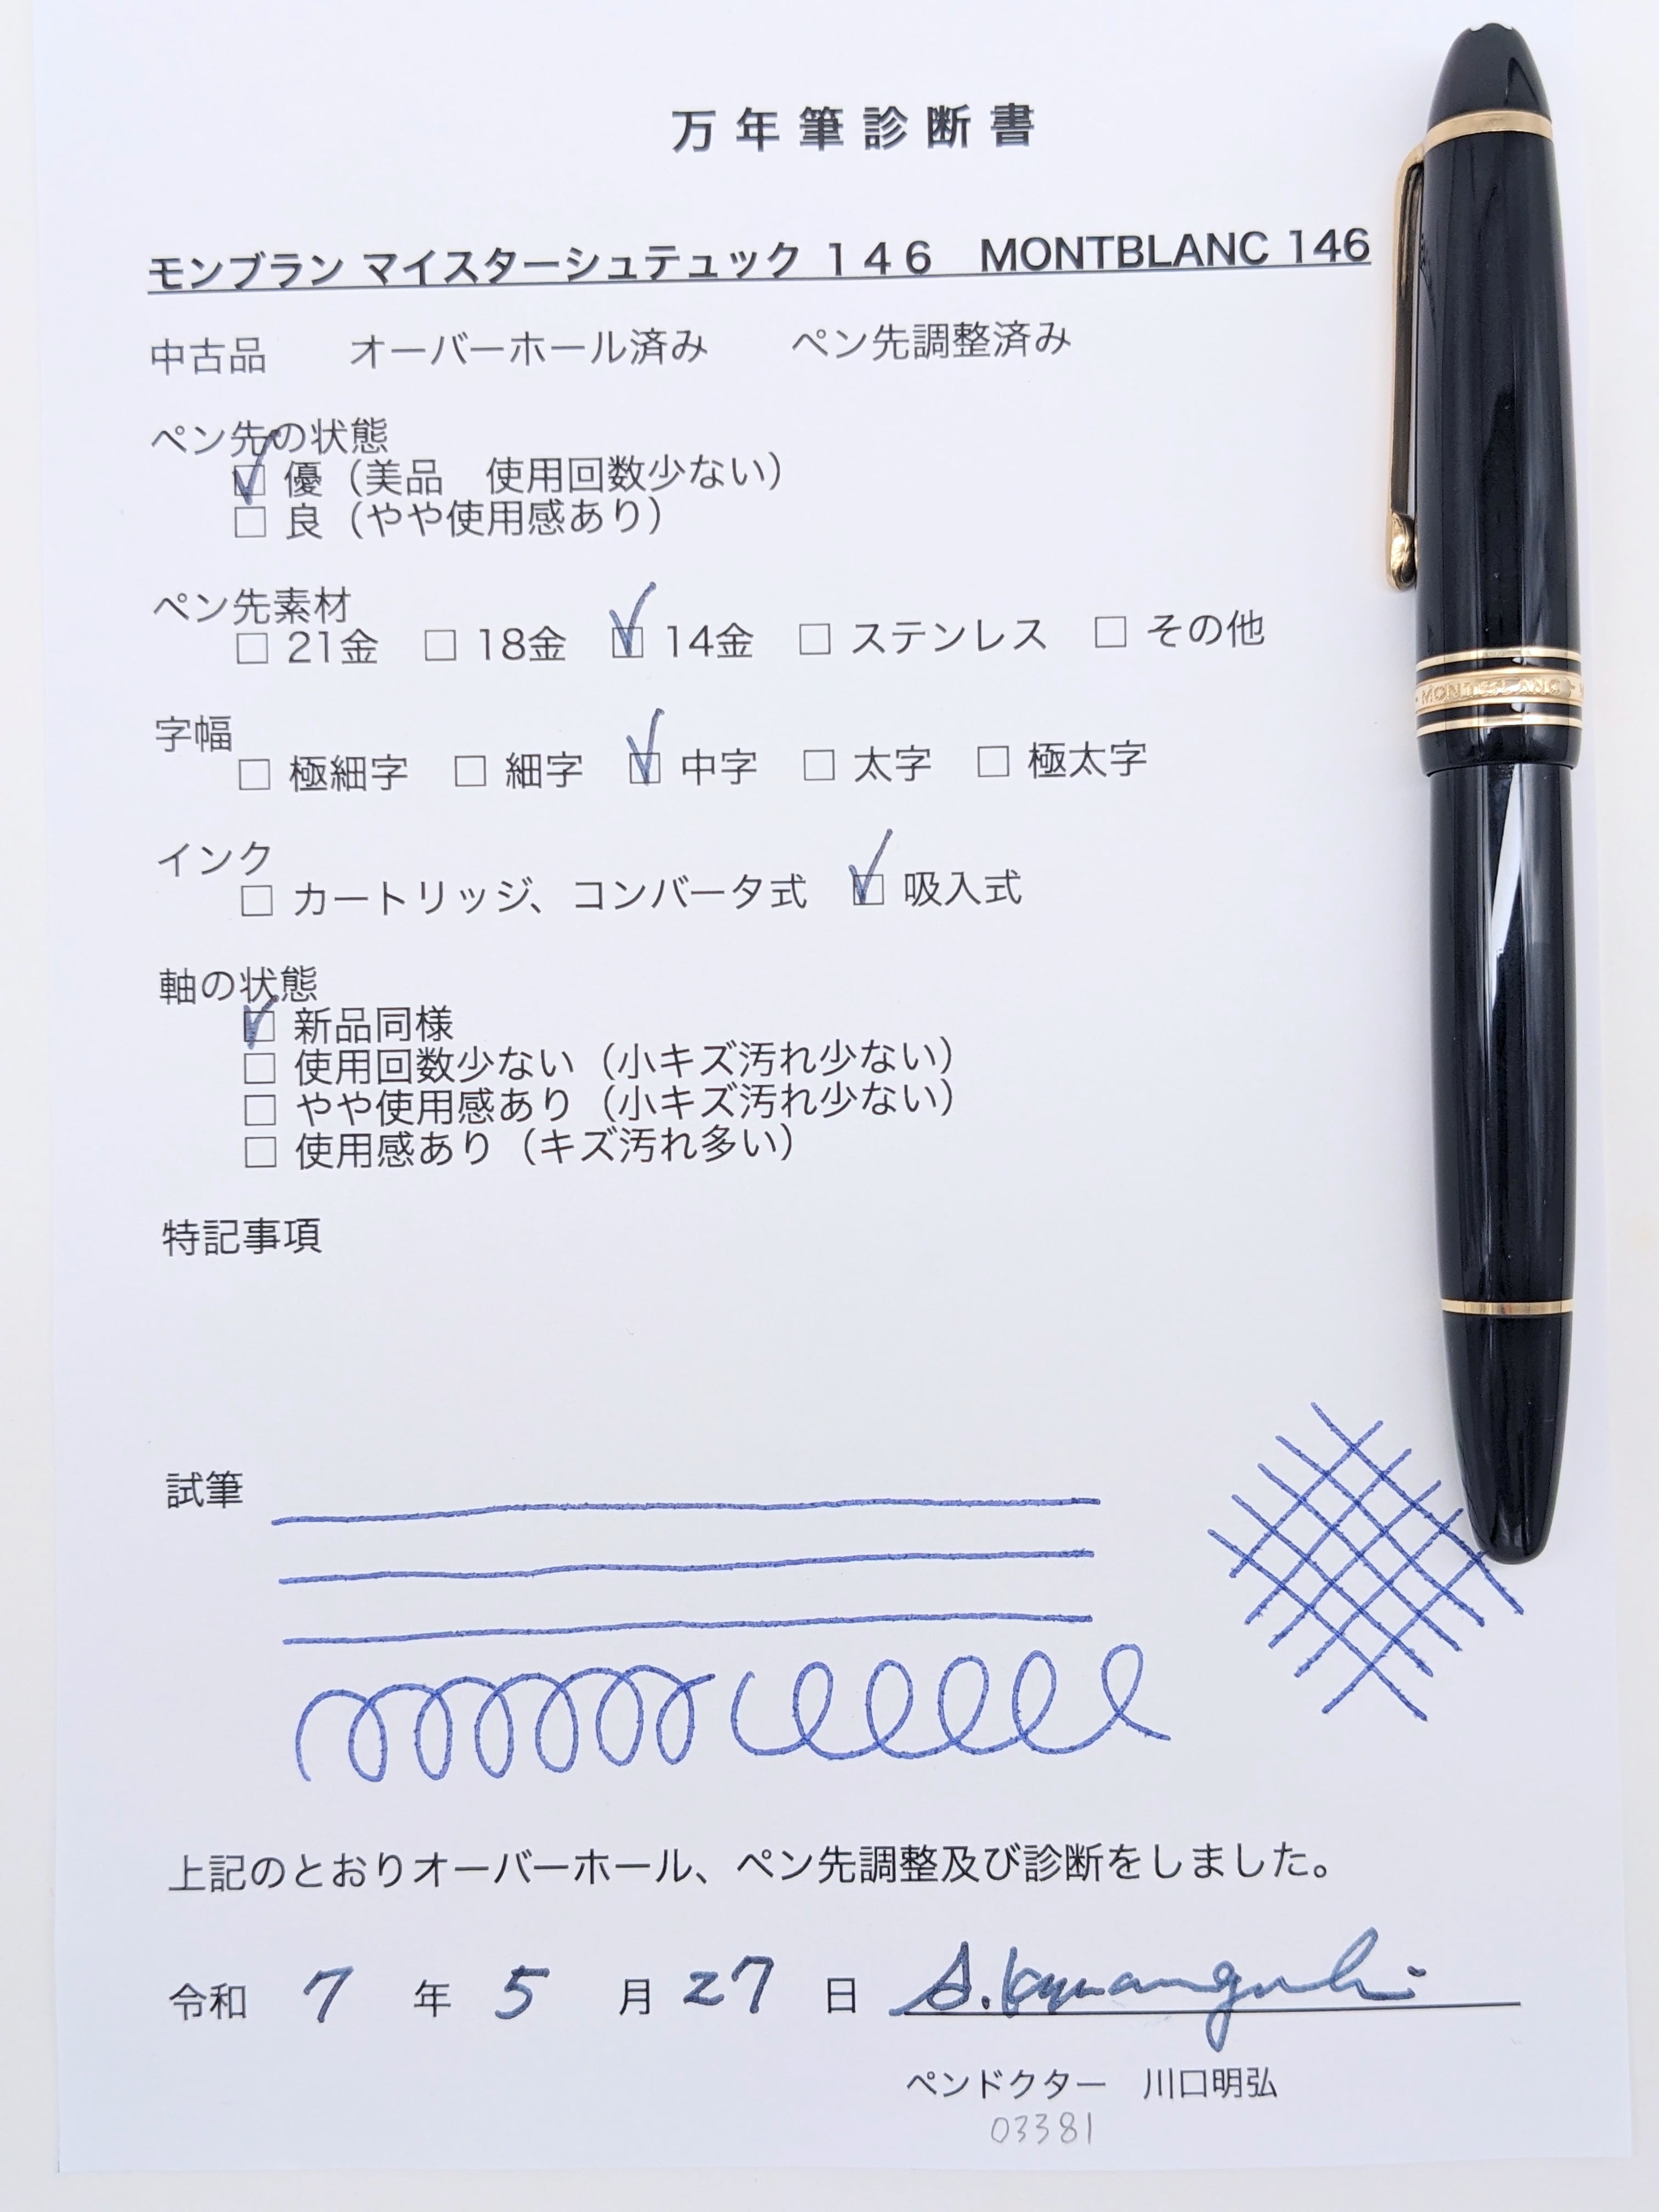 万年筆診断書
モンブラン マイスターシュテュック 146 MONTBLANC 146
中古品 オーバーホール済み ペン先調整済み
ペン先の状態
☑ 優（美品 使用回数少ない）
□ 良（やや使用感あり）
ペン先素材
□ 21金 □ 18金 ☑ 14金 □ ステンレス □ その他
字幅
□ 極細字 □ 細字 ☑ 中字 □ 太字 □ 極太字
インク
□ カートリッジ、コンバータ式 ☑ 吸入式
軸の状態
☑ 新品同様
□ 使用回数少ない（小キズ汚れ少ない）
□ やや使用感あり（小キズ汚れ少ない）
□ 使用感あり（キズ汚れ多い）
特記事項
試筆
上記のとおりオーバーホール、ペン先調整及び診断をしました。
令和 7 年 5 月 27 日
ペンドクター 川口明弘
03381
MONTBLANC